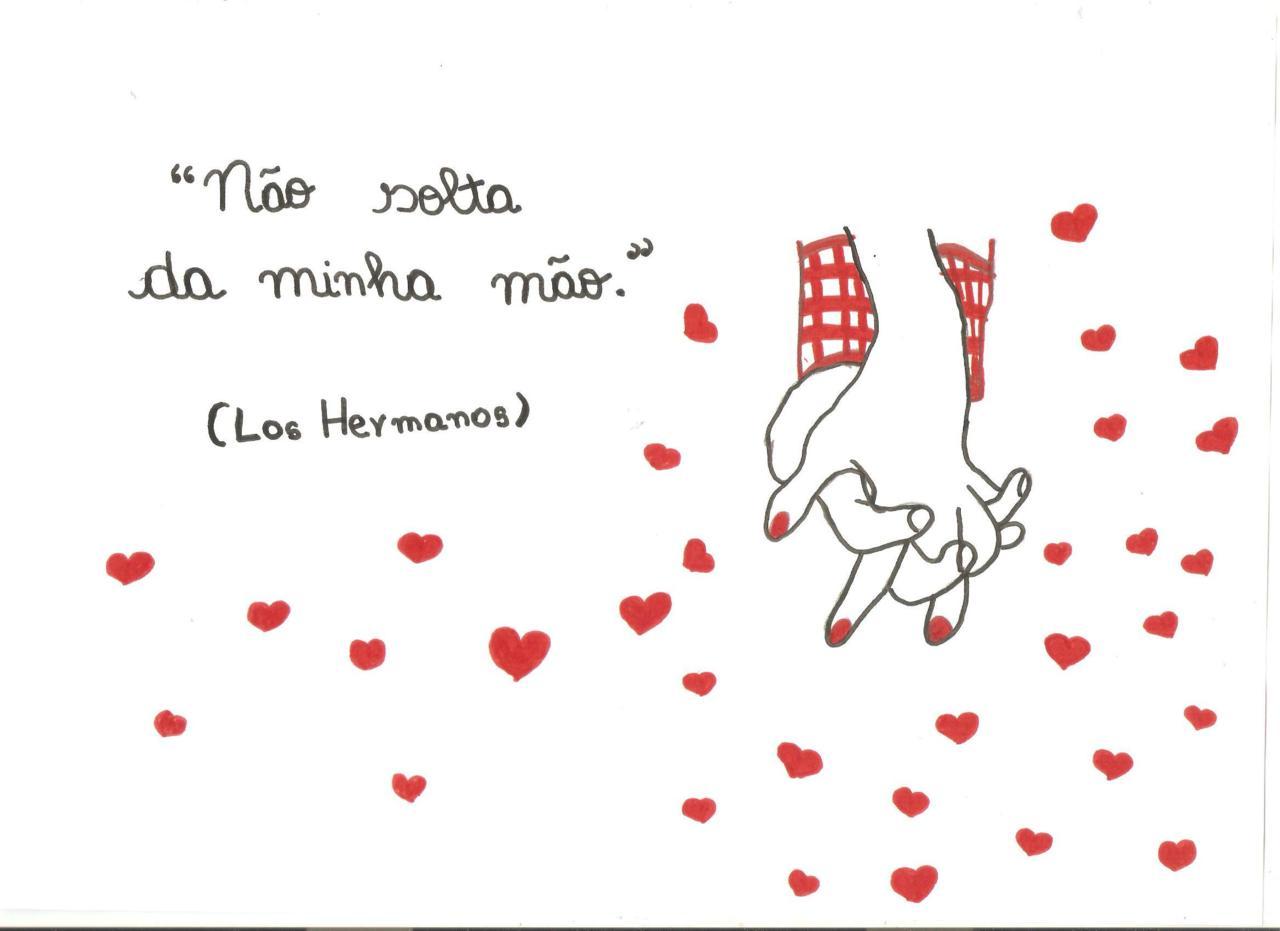 “Não solta
da minha mão.”
(Los Hermanos)